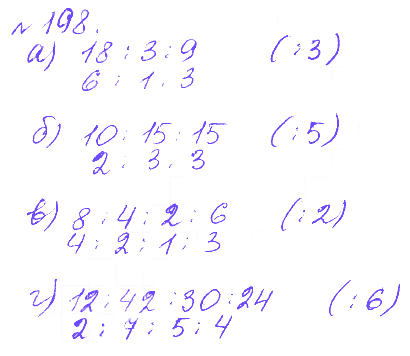 № 198.
а) 18 : 3 : 9 (:3)
6 : 1 : 3
б) 10 : 15 : 15 (:5)
2 : 3 : 3
в) 8 : 4 : 2 : 6 (:2)
4 : 2 : 1 : 3
г) 12 : 42 : 30 : 24 (:6)
2 : 7 : 5 : 4